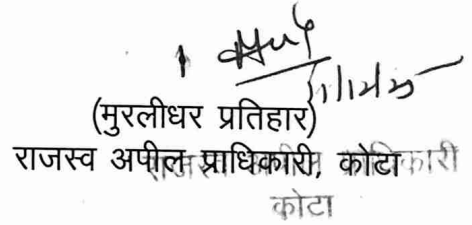 (मुरलीधर प्रतिहार)
राजस्व अपील प्राधिकारी, कोटा
कोटा